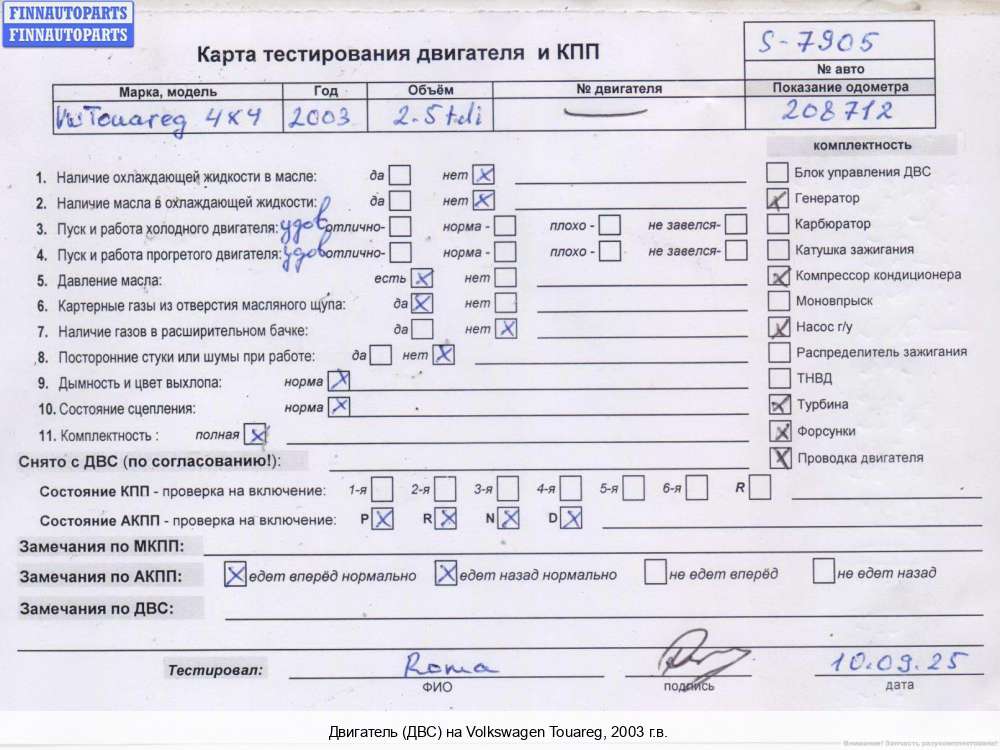 FINNAUTOPARTS
FINNAUTOPARTS
Карта тестирования двигателя и КПП
S-7905
№ авто
Марка, модель Год Объём № двигателя Показание одометра
VW Touareg 4x4 2003 2.5 tdi — 208712
комплектность
1. Наличие охлаждающей жидкости в масле: да нет X
Блок управления ДВС
2. Наличие масла в охлаждающей жидкости: да нет X
Генератор
3. Пуск и работа холодного двигателя: удов отлично- норма - плохо - не завелся-
Карбюратор
4. Пуск и работа прогретого двигателя: удов отлично- норма - плохо - не завелся-
Катушка зажигания
5. Давление масла: есть X нет
Компрессор кондиционера
6. Картерные газы из отверстия масляного щупа: да X нет
Моновпрыск
7. Наличие газов в расширительном бачке: да нет X
Насос г/у
8. Посторонние стуки или шумы при работе: да нет X
Распределитель зажигания
9. Дымность и цвет выхлопа: норма X
ТНВД
10. Состояние сцепления: норма X
Турбина
11. Комплектность : полная X
Форсунки
Снято с ДВС (по согласованию!):
Проводка двигателя
Состояние КПП - проверка на включение: 1-я 2-я 3-я 4-я 5-я 6-я R
Состояние АКПП - проверка на включение: P X R X N X D X
Замечания по МКПП:
Замечания по АКПП: X едет вперёд нормально X едет назад нормально не едет вперёд не едет назад
Замечания по ДВС:
Тестировал: Roma 10.09.25
ФИО подпись дата
Двигатель (ДВС) на Volkswagen Touareg, 2003 г.в.
Внимание! Запчасть разукомплектована!